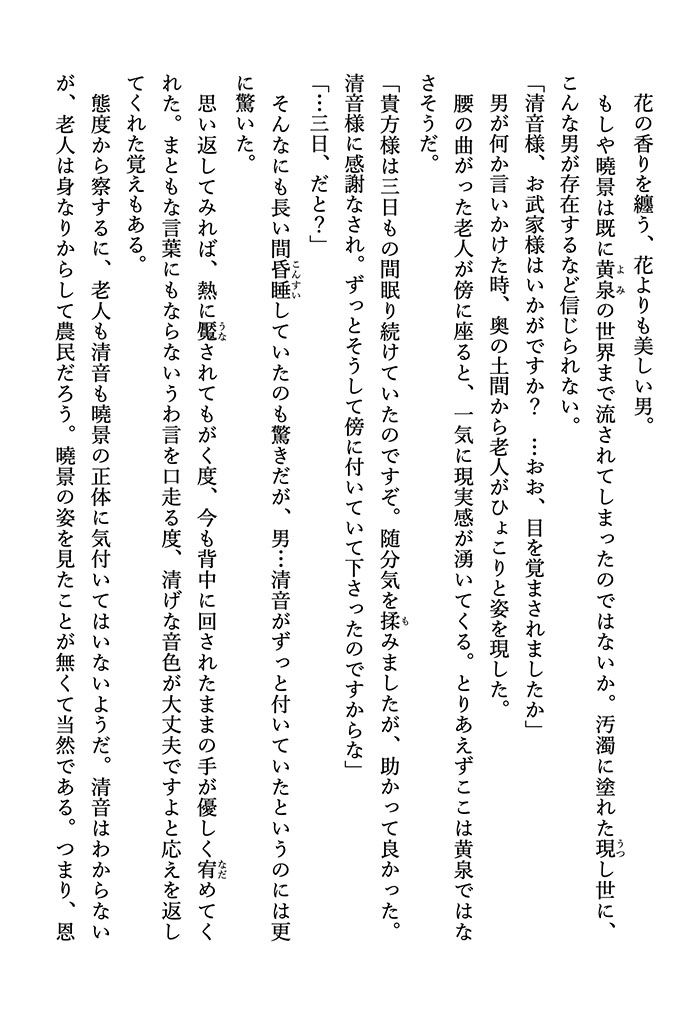 花の香りを纏う、花よりも美しい男。
もしや曉景は既に黄泉の世界まで流されてしまったのではないか。汚濁に塗れた現し世に、
こんな男が存在するなど信じられない。
「清音様、お武家様はいかがですか？　…おお、目を覚まされましたか」
男が何か言いかけた時、奥の土間から老人がひょこりと姿を現した。
腰の曲がった老人が傍に座ると、一気に現実感が湧いてくる。とりあえずここは黄泉ではな
さそうだ。
「貴方様は三日もの間眠り続けていたのですぞ。随分気を揉みましたが、助かって良かった。
清音様に感謝なされ。ずっとそうして傍に付いていて下さったのですからな」
「…三日、だと？」
そんなにも長い間昏睡していたのも驚きだが、男…清音がずっと付いていたというのには更
に驚いた。
思い返してみれば、熱に魘されてもがく度、今も背中に回されたままの手が優しく宥めてく
れた。まともな言葉にもならないうわ言を口走る度、清げな音色が大丈夫ですよと応えを返し
てくれた覚えもある。
態度から察するに、老人も清音も曉景の正体に気付いてはいないようだ。清音はわからない
が、老人は身なりからして農民だろう。曉景の姿を見たことが無くて当然である。つまり、恩